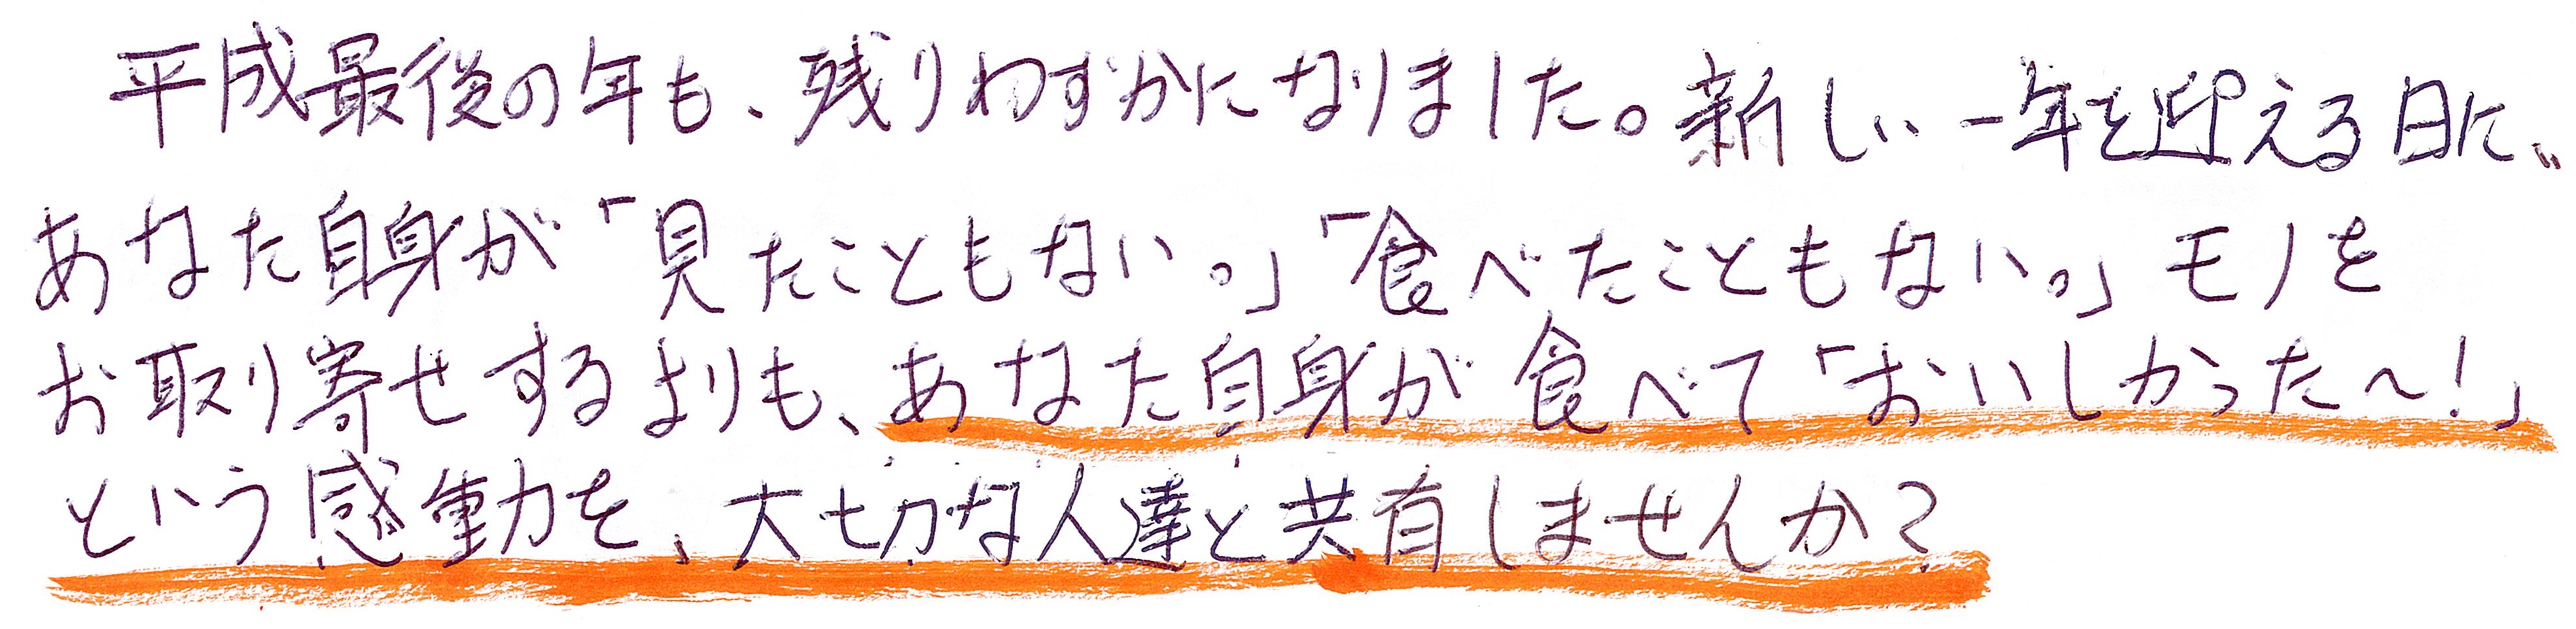 平成最後の年も、残りわずかになりました。新しい一年を迎える日に、
あなた自身が「見たこともない。」「食べたこともない。」モノを
お取り寄せするよりも、あなた自身が食べて「おいしかった～!」
という感動を、大切な人達と共有しませんか?